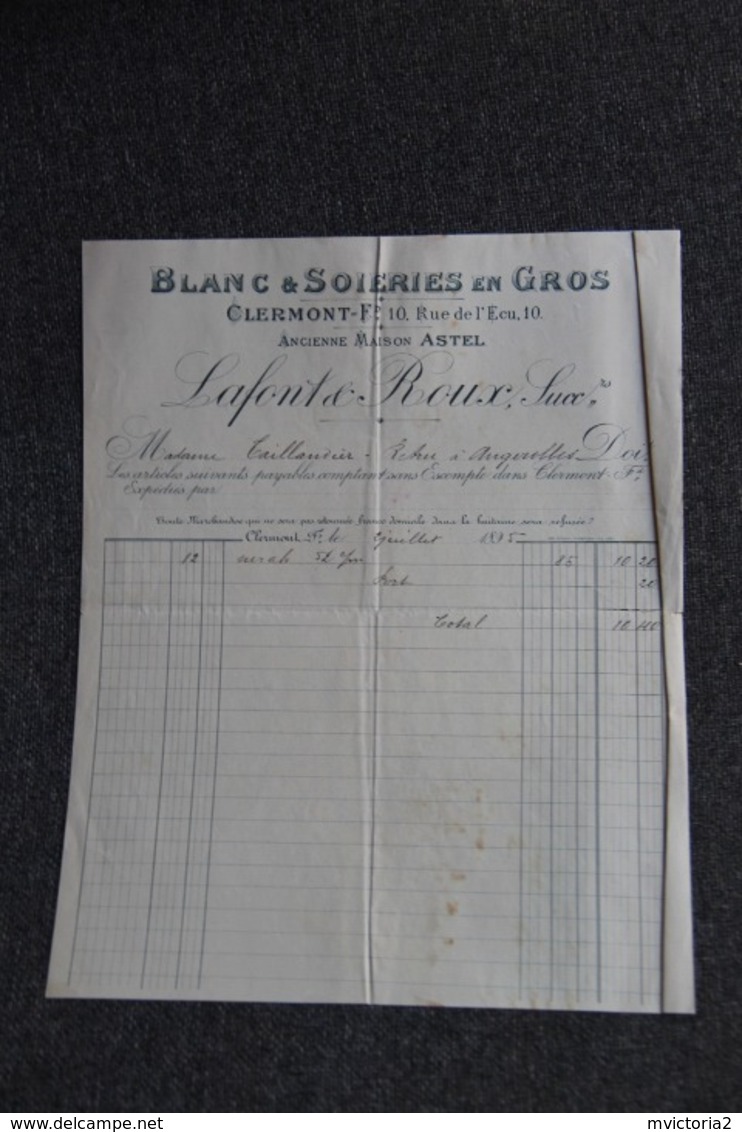 BLANC & SOIERIES EN GROS
CLERMONT-Fd 10, Rue de l'Ecu, 10.
ANCIENNE MAISON ASTEL
Lafont & Roux, Succrs
Madame Taillandier à Doit
Les articles suivants payables comptant sans Escompte dans Clermont-Fd
Expédiés par
Toute Marchandise qui ne sera pas retournée franco domicile dans la huitaine sera refusée.
Clermont Fd le Juillet 1895
12 surah 85 10 20
Port 20
Total 10 40
©delcampe.net
mvictoria2